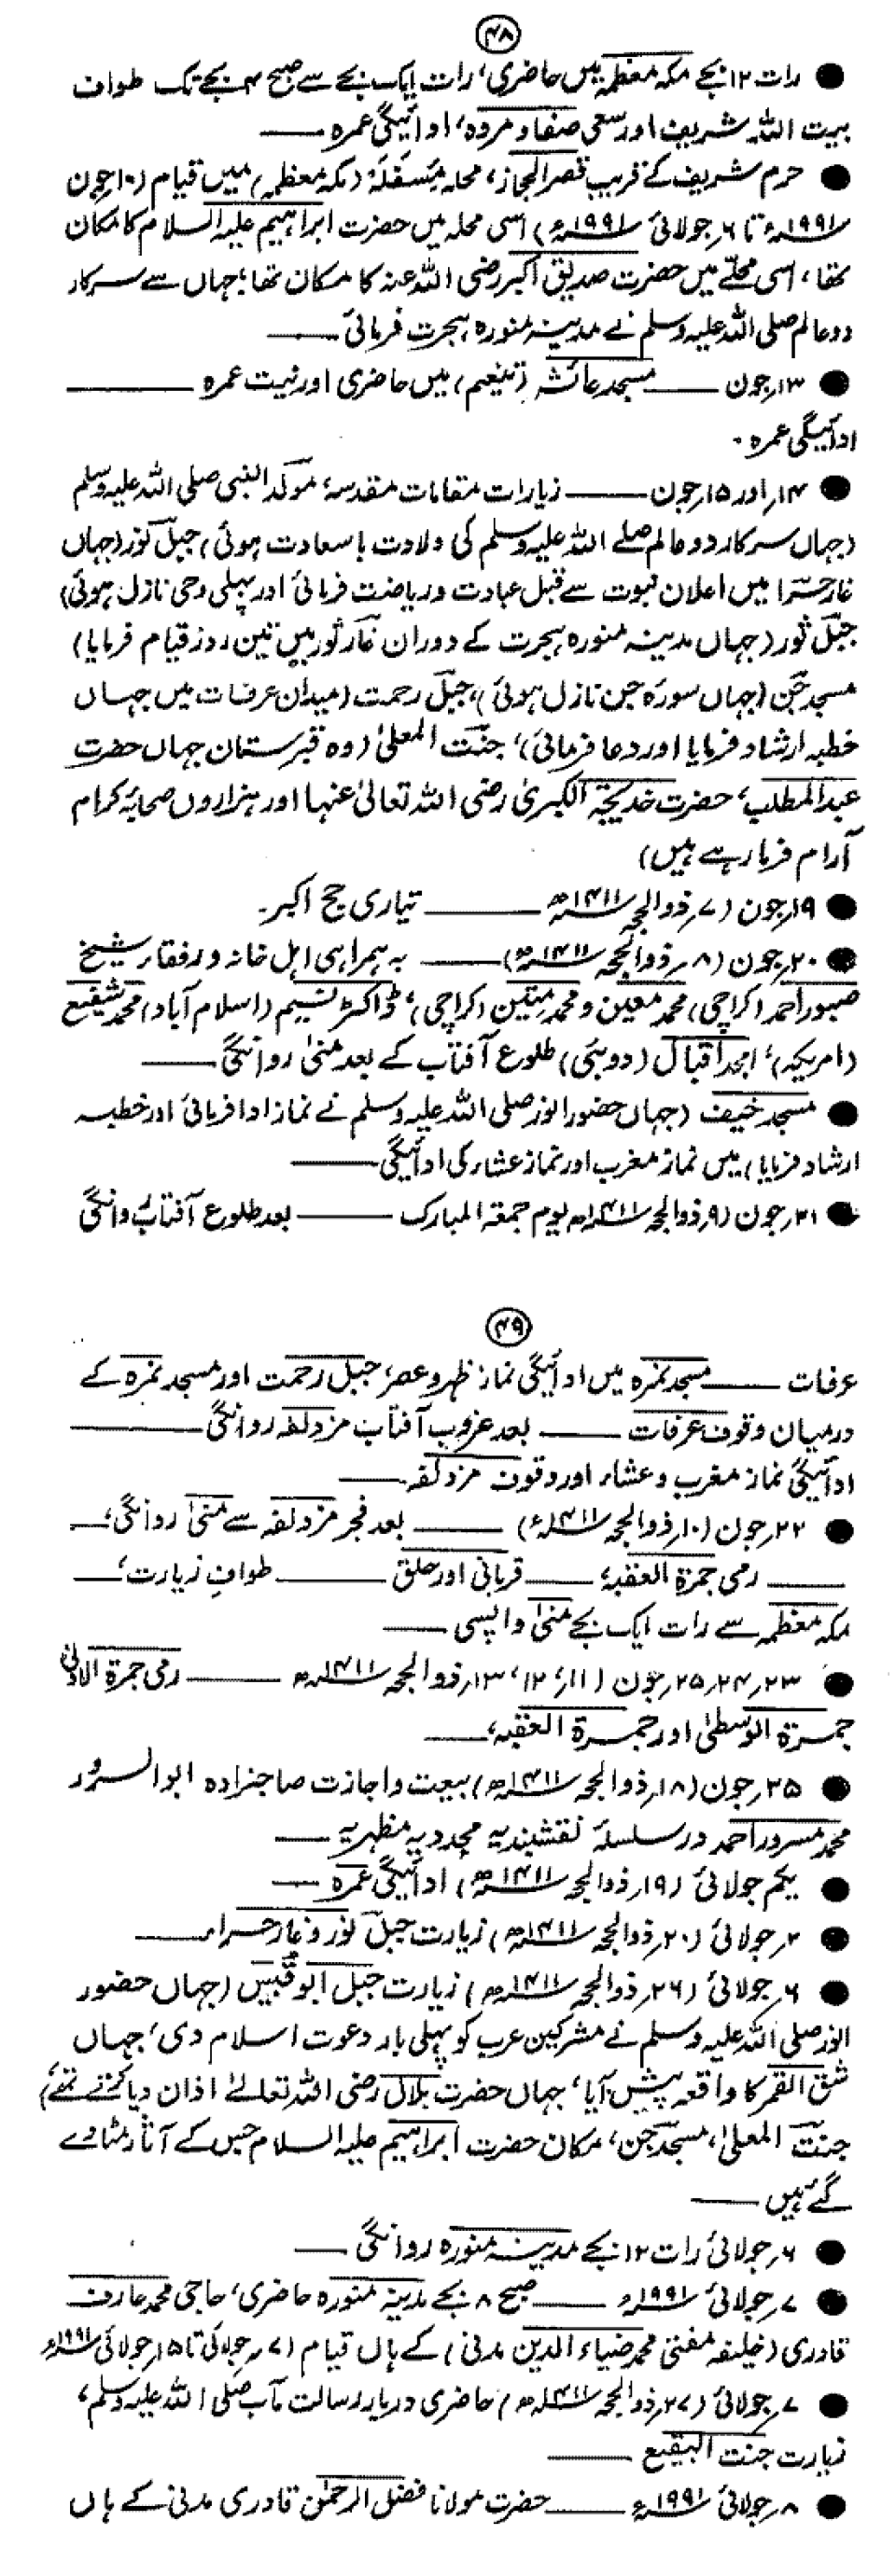 ۴۸
● رات ۱۲ بجے مکہ معظمہ میں حاضری، رات ایک بجے سے صبح ۴ بجے تک طواف
بیت اللہ شریف اور سعی صفا و مروہ، ادائیگی عمرہ ——
● حرم شریف کے قریب قصر الحجاز، محلہ مَسْفَلَہ (مکہ معظمہ) میں قیام (۱۰ جون
۱۹۹۱ء تا ۶ر جولائی ۱۹۹۱ء) اسی محلہ میں حضرت ابراہیم علیہ السلام کا مکان
تھا، اسی محلّے میں حضرت صدیق اکبر رضی اللہ عنہ کا مکان تھا، جہاں سے سرکار
دو عالم صلی اللہ علیہ وسلم نے مدینہ منورہ ہجرت فرمائی ——
● ۱۳ر جون —— مسجد عائشہ (تنعیم) میں حاضری اور نیت عمرہ ——
ادائیگی عمرہ۔
● ۱۴ر اور ۱۵ر جون —— زیارات مقامات مقدسہ، مولد النبی صلی اللہ علیہ وسلم
(جہاں سرکار دو عالم صلے اللہ علیہ وسلم کی ولادت با سعادت ہوئی) جبل نور (جہاں
غار حرا میں اعلان نبوت سے قبل عبادت و ریاضت فرمائی اور پہلی وحی نازل ہوئی)
جبل ثور (جہاں مدینہ منورہ ہجرت کے دوران غار ثور میں تین روز قیام فرمایا)
مسجد جن (جہاں سورہ جن نازل ہوئی)، جبل رحمت (میدان عرفات میں جہاں
خطبہ ارشاد فرمایا اور دعا فرمائی)، جنت المعلیٰ (وہ قبرستان جہاں حضرت
عبدالمطلب، حضرت خدیجۃ الکبریٰ رضی اللہ تعالیٰ عنہا اور ہزاروں صحابۂ کرام
آرام فرما رہے ہیں)
● ۱۹ر جون (۷ر ذوالحجہ ۱۴۱۱ھ —— تیاری حج اکبر۔
● ۲۰ر جون (۸ر ذوالحجہ ۱۴۱۱ھ) —— بہ ہمراہی اہل خانہ و رفقاء شیخ
صبور احمد (کراچی) محمد معین و محمد متین (کراچی)، ڈاکٹر نسیم (اسلام آباد) محمد شفیع
(امریکہ)، امجد اقبال (دوبئی) طلوع آفتاب کے بعد منیٰ روانگی ——
● مسجد خیف (جہاں حضور انور صلی اللہ علیہ وسلم نے نماز ادا فرمائی اور خطبہ
ارشاد فرمایا) میں نماز مغرب اور نماز عشاء کی ادائیگی ——
● ۲۱ر جون (۹ر ذوالحجہ ۱۴۱۱ھ یوم جمعۃ المبارک —— بعد طلوع آفتاب روانگی
۴۹
عرفات —— مسجد نمرہ میں ادائیگی نماز ظہر و عصر، جبل رحمت اور مسجد نمرہ کے
درمیان وقوف عرفات —— بعد غروب آفتاب مزدلفہ روانگی ——
ادائیگی نماز مغرب و عشاء اور وقوف مزدلفہ ——
● ۲۲ر جون (۱۰ر ذوالحجہ ۱۴۱۱ء) —— بعد فجر مزدلفہ سے منیٰ روانگی، ——
—— رمی جمرۃ العقبہ، —— قربانی اور حلق —— طواف زیارت، ——
مکہ معظمہ سے رات ایک بجے منیٰ واپسی ——
● ۲۳ر ۲۴ر ۲۵ر جون (۱۱ر، ۱۲، ۱۳ر ذوالحجہ ۱۴۱۱ھ —— رمی جمرۃ الاولیٰ
جمرۃ الوسطیٰ اور جمرۃ العقبہ، ——
● ۲۵ر جون (۱۸ر ذوالحجہ ۱۴۱۱ھ) بیعت و اجازت صاحبزادہ ابو السرور
محمد مسرور احمد در سلسلۂ نقشبندیہ مجددیہ مظہریہ ——
● یکم جولائی (۱۹ر ذوالحجہ ۱۴۱۱ھ) ادائیگی عمرہ ——
● ۲ر جولائی (۲۰ر ذوالحجہ ۱۴۱۱ھ) زیارت جبل نور و غار حراء ——
● ۶ر جولائی (۲۶ر ذوالحجہ ۱۴۱۱ھ) زیارت جبل ابو قبیس (جہاں حضور
انور صلی اللہ علیہ وسلم نے مشرکین عرب کو پہلی بار دعوت اسلام دی، جہاں
شق القمر کا واقعہ پیش آیا، جہاں حضرت بلال رضی اللہ تعالےٰ اذان دیا کرتے تھے)
جنت المعلیٰ، مسجد جن، مکان حضرت ابراہیم علیہ السلام جس کے آثار مٹا دے
گئے ہیں ——
● ۶ر جولائی رات ۱۲ بجے مدینہ منورہ روانگی ——
● ۷ر جولائی ۱۹۹۱ء —— صبح ۸ بجے مدینہ منورہ حاضری، حاجی محمد عارف
قادری (خلیفہ مفتی محمد ضیاء الدین مدنی) کے ہاں قیام (۷ر جولائی تا ۱۵ر جولائی ۱۹۹۱ء
● ۷ر جولائی (۲۷ر ذوالحجہ ۱۴۱۱ھ) حاضری دربار رسالت مآب صلی اللہ علیہ وسلم،
زیارت جنت البقیع ——
● ۸ر جولائی ۱۹۹۱ء —— حضرت مولانا فضل الرحمٰن قادری مدنی کے ہاں